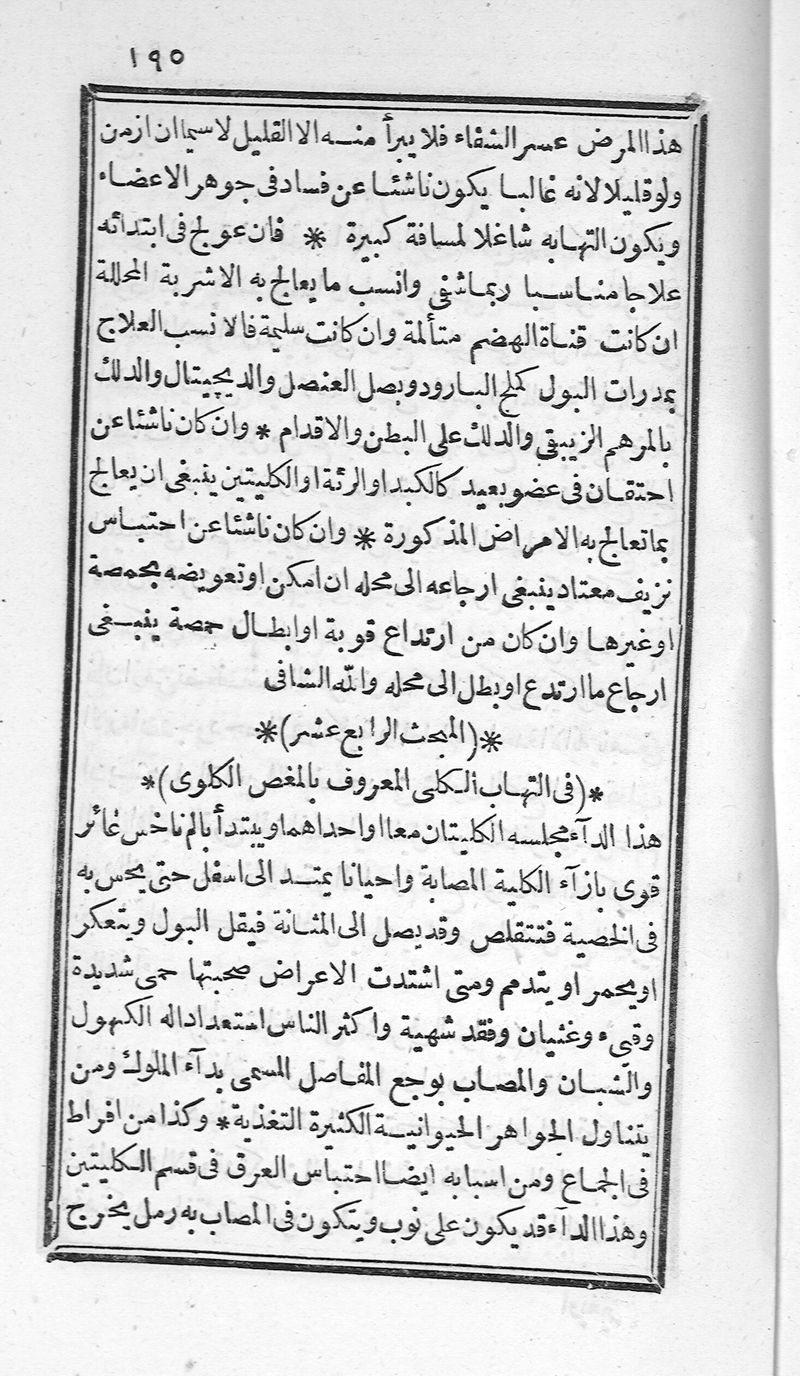 ١٩٥
هذا المرض عسر الشفاء فلا يبرأ منه الا القليل لا سيما ان ازمن
ولو قليلا لانه غالبا يكون ناشئا عن فساد فى جوهر الاعضاء
ويكون التهابه شاغلا لمسافة كبيرة * فان عولج فى ابتدائه
علاجا مناسبا ربما شفى وانسب ما يعالج به الاشربة المحللة
ان كانت قناة الهضم متألمة وان كانت سليمة فالانسب العلاج
بمدرات البول كملح البارود وبصل العنصل والديچيتال والدلك
بالمرهم الزيبقى والدلك على البطن والاقدام * وان كان ناشئا عن
احتقان فى عضو بعيد كالكبد او الرئة او الكليتين ينبغى ان يعالج
بما تعالج به الامراض المذكورة * وان كان ناشئا عن احتباس
نزيف معتاد ينبغى ارجاعه الى محله ان امكن او تعويضه بحمصة
او غيرها وان كان من ارتداع قوبة او ابطال حمصة ينبغى
ارجاع ما ارتدع او بطل الى محله والله الشافى
*(المبحث الرابع عشر)*
*(فى التهاب الكلى المعروف بالمغص الكلوى)*
هذا الدآء مجلسه الكليتان معا او احداهما ويبتدأ بالم ناخس غائر
قوى بازآء الكلية المصابة واحيانا يمتد الى اسفل حتى يحس به
فى الخصية فتتقلص وقد يصل الى المثانة فيقل البول ويتعكر
او يحمر او يتدمم ومتى اشتدت الاعراض صحبتها حمى شديدة
وقيء وغثيان وفقد شهية واكثر الناس استعدادا له الكهول
والشبان والمصاب بوجع المفاصل المسمى بدآء الملوك ومن
يتناول الجواهر الحيوانية الكثيرة التغذية * وكذا من افراط
فى الجماع ومن اسبابه ايضا احتباس العرق فى قسم الكليتين
وهذا الدآء قد يكون على نوب ويتكون فى المصاب به رمل يخرج